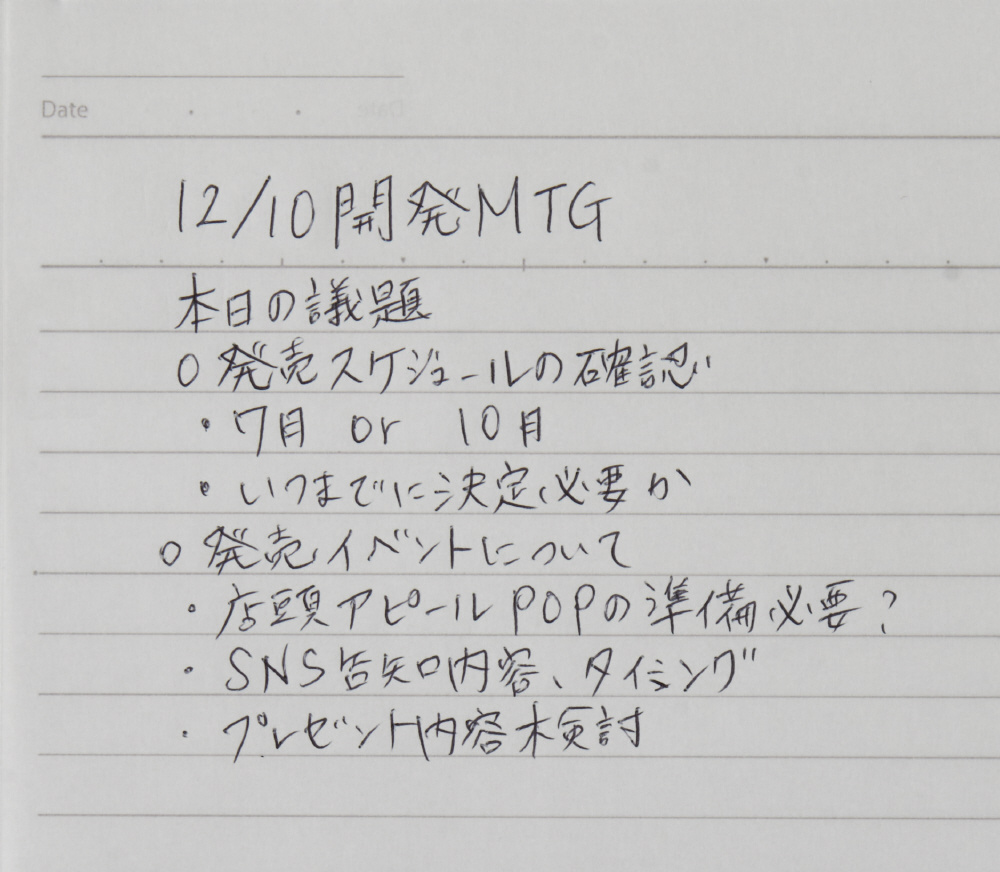 Date
12/10 開発MTG
本日の議題
○ 発売スケジュールの確認
・7月 or 10月
・いつまでに決定必要か
○ 発売イベントについて
・店頭アピールPOPの準備必要?
・SNS告知内容、タイミング
・プレゼント内容検討